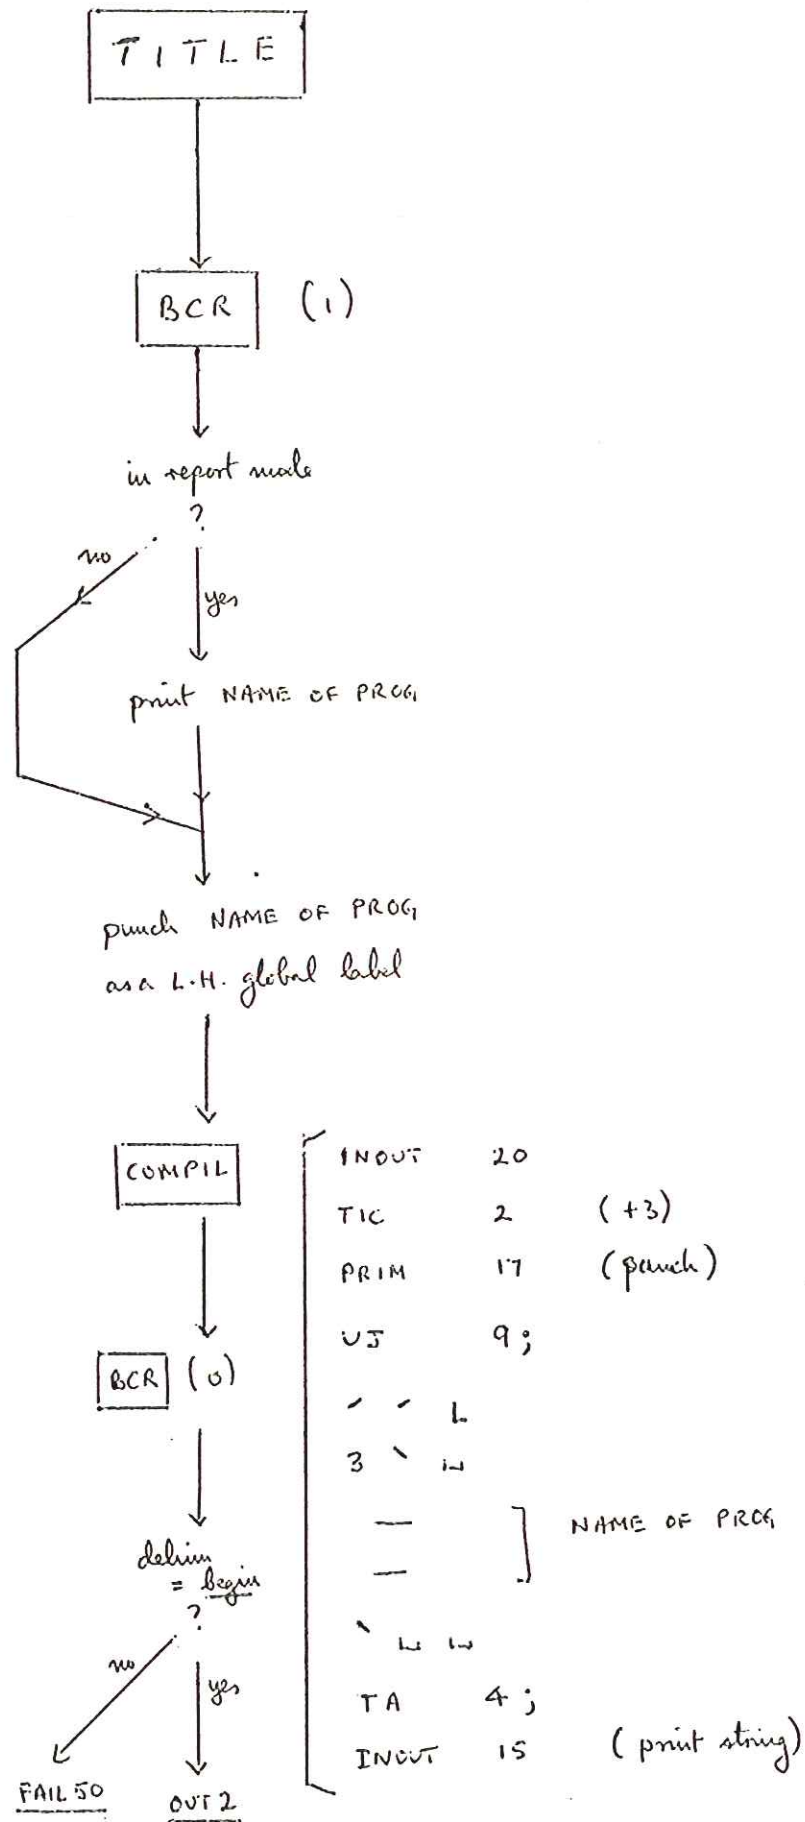 TITLE
BCR (1)
in report mode
?
no
yes
print NAME OF PROG
punch NAME OF PROG
as a L.H. global label
COMPIL
BCR (0)
delim
= begin
?
no
yes
FAIL 50
OUT 2
INOUT 20
TIC 2 (+3)
PRIM 17 (punch)
UJ 9;
´ ´ L
3 ` ␣
— 
— 
NAME OF PROG
` ␣ ␣
TA 4;
INOUT 15 (print string)